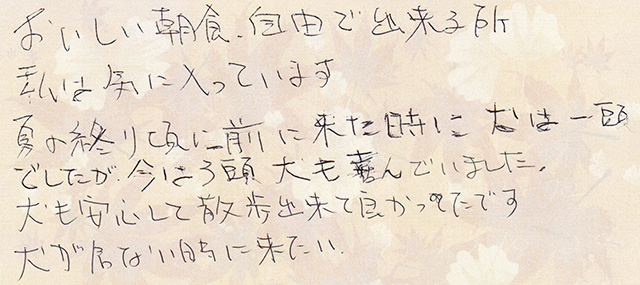 おいしい朝食、自由で出来る所
私は気に入っています
夏の終り頃に前に来た時に 犬は一頭
でしたが、今は3頭 犬も喜んでいました。
犬も安心して散歩出来て良かってたです
犬が居ない時に来たい.